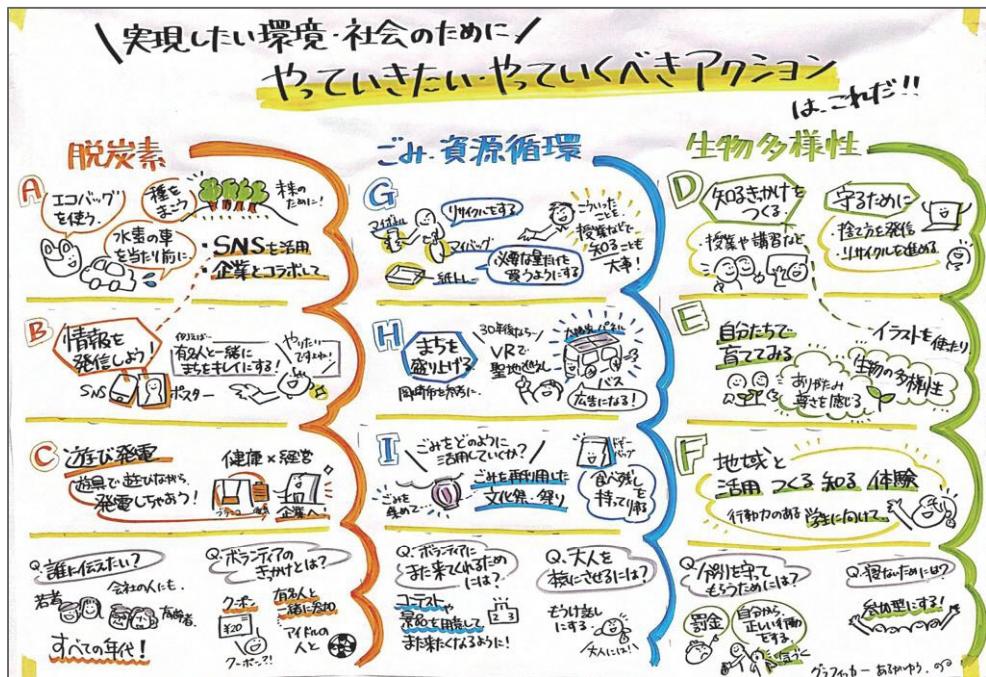 実現したい環境・社会のために
やっていきたい・やっていくべきアクション
は、これだ!!
脱炭素
A
エコバッグ
を使う。
種を
まこう
未来の
ために!
水素の車
を当たり前に。
・SNSを活用
企業とコラボして
B
情報を
発信しよう!
SNS
ポスター
例えば…
有名人と一緒に
まちをキレイにする!
C
遊び発電
遊具で遊びながら、
発電しちゃおう!
健康×経営
ブランコ
企業へ!
Q.誰に伝えたい?
若者
会社の人にも、
高齢者、
すべての年代!
Q.ボランティアの
きっかけとは?
クーポン
¥20
クーポン?!
有名人と
一緒に参加
アイドルの
人と
ごみ・資源循環
G
マイボトル
リサイクルをする
マイバッグ
紙トレー
・必要な量だけを
買うようにする
こういった
ことを、
授業などで
知ることも
大事!
H
まちを
盛り上げる。
岡崎市を参考に、
30年後なら〜
VRで
聖地巡礼
太陽光パネル
バス
広告になる!
I
ごみをどのように
活用していくか?
ごみを
集めて…
ごみを再利用した
文化祭・祭り
ドギー
バッグ
食べ残し
を
持って帰る
Q.ボランティアに
また来てくれるため
には?
コンテストや
景品を用意して
また来たくなるように!
1 2 3
Q.大人を
本気にさせるには?
もうけ話し
にする。
大人には!!
生物多様性
D
知るきっかけを
つくる。
授業や講習など
守るために
・捨て方を発信
・リサイクルを進める。
E
自分たちで
育ててみる
イラストを使ったり
ありがたみ
尊さを感じる
生物の多様性
F
地域と
活用 つくる 知る 体験
行動力のある 学生に向けて、
Q.分別を守って
もらうためには?
罰金
自分から、
正しい行動
をする。
気づく
Q.寝ないためには?
参加型にする!